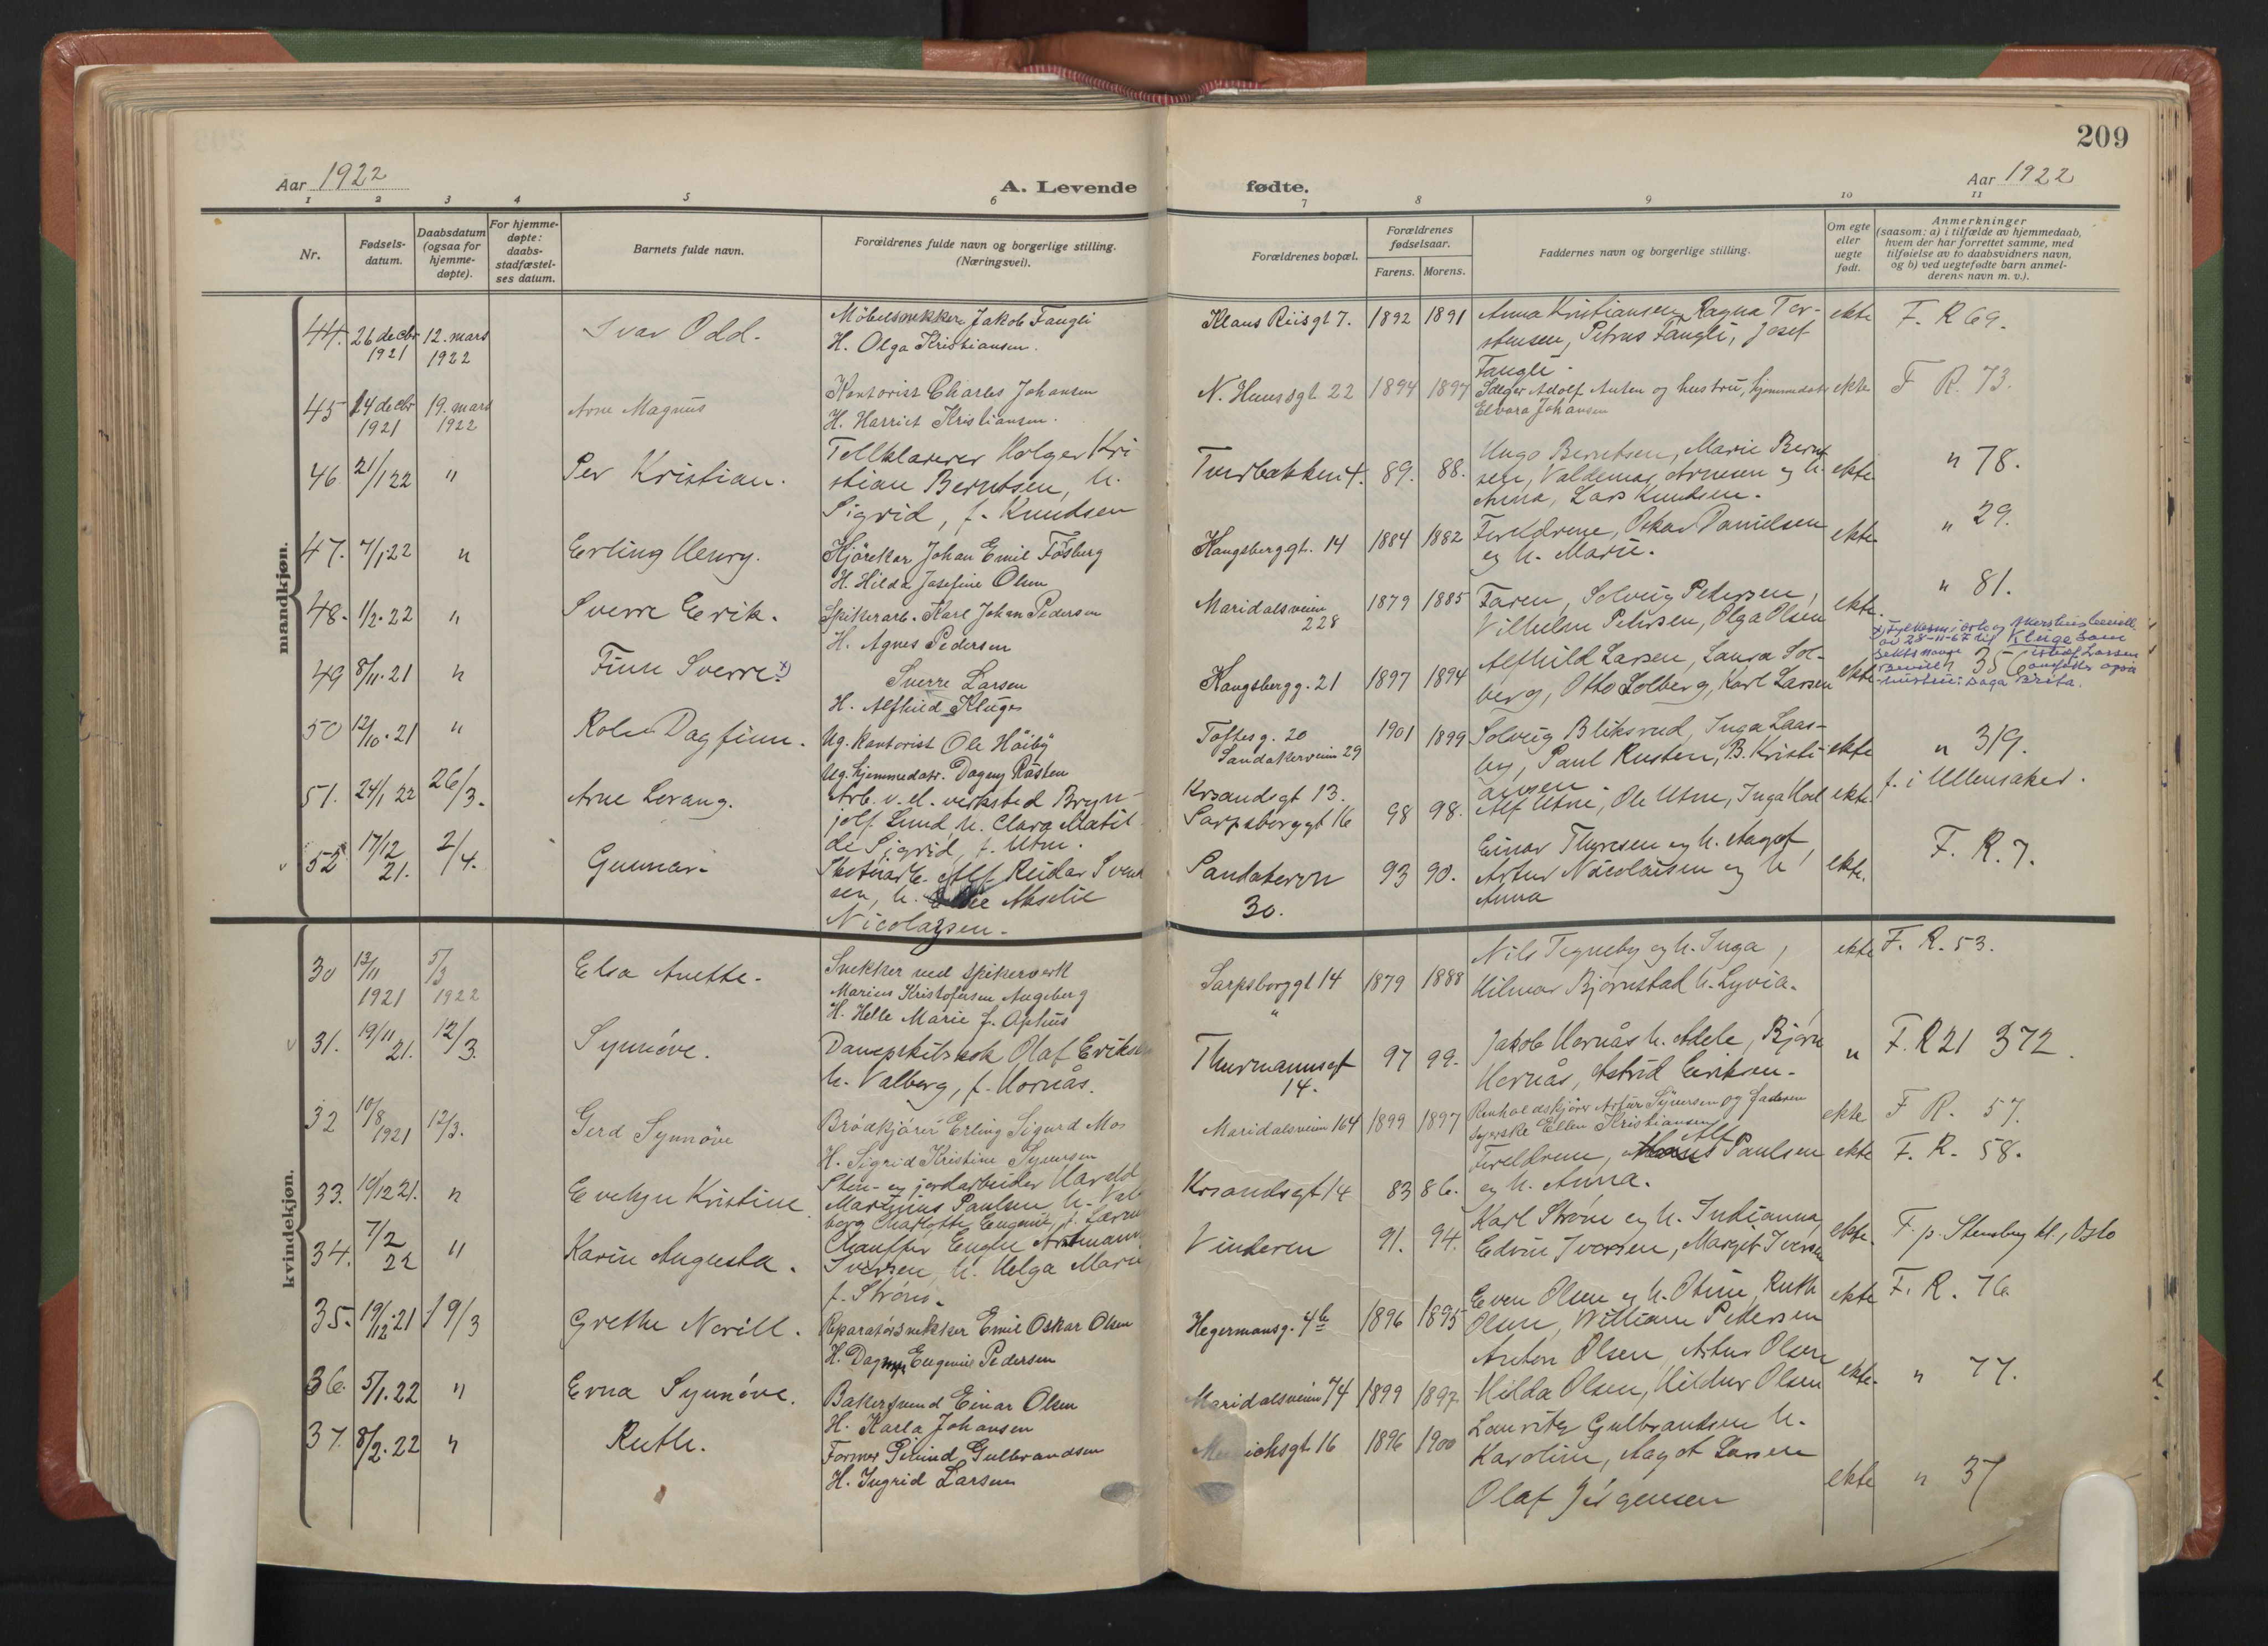 209
Aar 1922
A. Levende
fødte.
Aar 1922
1 2 3 4 5 6 7 8 9 10 11
Nr.
Fødsels-
datum.
Daabsdatum
(ogsaa for
hjemme-
døpte).
For hjemme-
døpte:
daabs-
stadfæstel-
ses datum.
Barnets fulde navn.
Forældrenes fulde navn og borgerlige stilling.
(Næringsvei).
Forældrenes bopæl.
Forældrenes
fødselsaar.
Farens. Morens.
Faddernes navn og borgerlige stilling.
Om egte
eller
uegte
født.
Anmerkninger
(saasom: a) i tilfælde av hjemmedaab,
hvem der har forrettet samme, med
tilføielse av to daabsvidners navn,
og b) ved uegtefødte barn anmel-
derens navn m. v.).
mandkjøn.
44. 26 decbr 1921 12. mars 1922
Ivar Odd.
Möbelsnekker Jakob Fangli
H. Olga Kristiansen.
Klaus Riisgt 7. 1892 1891
Anna Kristiansen, Ragna Tor-
stensen, Petrus Fangli, Josef
Fangli.
ekte F. R 69.
45 14 decbr 1921 19. mars 1922
Arne Magnus
Kontorist Charles Johansen
H. Harriet Kristiansen.
N. Hunsgt 22 1894 1897
Sælger Adolf Anten og hustru, hjemmedatr
Elvora Johansen
ekte F R. 73.
46. 21/1 22 "
Per Kristian.
Tollklarerer Holger Kri-
stian Berntsen, h.
Sigrid, f. Knudsen
Tverbakken 4. 89. 88.
Hugo Berntsen, Marie Bernt-
sen, Valdemar Arnesen og h.
Anna, Lars Knudsen.
ekte. " 78.
47. 7/1 22 "
Erling Henry.
Kjörekar Johan Emil Fosberg
H. Hilda Josefine Olsen
Kongsberggt. 14 1884 1882
Foreldrene, Oskar Danielsen
og h. Marie.
ekte. " 29.
48. 1/2. 22 "
Sverre Erik.
Spikerarb. Karl Johan Pedersen
H. Agnes Pedersen
Maridalsveien
228
1879 1885
Faren, Solveig Pedersen,
Vilhelm Petersen, Olga Olsen
ekte. " 81.
49 8/11. 21 "
Finn Sverre. x)
Sverre Larsen
H. Alfhild Kluge
Kongsbergg. 21 1897 1894
Alfhild Larsen, Laura Sol-
berg, Otto Solberg, Karl Larsen
ekte " 356
av 28-11-67 til Kluge som
istedf. Larsen
hustru: Saga Brita.
50 12/10. 21 "
Rolv Dagfinn.
Ug. kontorist Ole Höiby
Ug. hjemmedatr. Dagny Rusten
Toftesg. 20
Sandakerveien 29
1901 1899
Solveig Bliksrud, Inga Laas-
by, Paul Rusten, B. Kristi-
ansen
ekte " 319.
51. 24/1 22 26/3.
Arne Lorang.
Arb. v. el. verksted Bryn-
jolf Lund, h. Clara Matil-
de Sigrid, f. Utne.
Krsandsgt 13.
Sarpsborggt 16
98 98.
Alf Utne, Ole Utne, Inga Hoel
ekte. f. i Ullensaker.
52 17/12 21. 2/4.
Gunnar.
Skotöiarb. Alf Reidar Svend-
sen, h. Akselie
Nicolaysen.
Sandakervn
30.
93 90.
Einar Thoresen og h. Aagot,
Artur Nicolaisen og h
Anna
ekte. F. R. 7.
kvindekjøn.
30 13/11 1921 5/3 1922
Elsa Anette.
Snekker ved spikerverk
Marius Kristofersen Angeberg
H. Helle Marie f. Ophus
Sarpsborggt 14 1879 1888
"
Nils Tegneby og h. Inga,
Hilmar Bjørnstad h. Lyvia.
ekte F. R. 53.
31. 19/11 21. 12/3.
Synnöve.
Dampskibskok Olaf Eriksen
h. Valborg, f. Hornås.
Thurmannsgt
14.
97 99.
Jakob Hornås h. Adele, Bjørn
Hornås, Astrid Eriksen.
" F. R 21 372.
32 10/8 1921 12/3.
Gerd Synnöve
Brödkjörer Erling Sigurd Moe
H. Sigrid Kristine Syversen
Maridalsveien 164 1899 1897
Renholdskjörer Artur Syversen og faderen
Syerske Ellen Kristiansen
ekte F R. 57.
33. 10/12 21. "
Evelyn Kristine
Sten- og jordarbeider Harald
Martinius Paulsen h. Val-
borg Charlotte Eugenie, f.
Krsandsgt 14 83 86.
Foreldrene, Alf Paulsen
og h. Anna.
ekte F. R. 58.
34. 7/2 22 "
Karin Augusta.
Chauffør Eugen
Iversen, h. Helga Marie
f. Ström.
Vinderen 91. 94.
Karl Ström og h. Indianna,
Edvin Iversen, Margit Iversen
ekte. F. p. Stensby kl., Oslo
35. 19/12. 21 19/3
Grethe Norill.
Reparatörsnekker Emil Oskar Olsen
H. Dagny Eugenie Pedersen
Hegermansg. 4b 1896 1895
Even Olsen og h. Otine, Ruth
Olsen, William Pettersen
ekte F. R. 76
36. 5/1. 22 "
Erna Synnöve.
Bakersvend Einar Olsen
H. Karla Johansen
Maridalsveien 74 1899 1897
Anton Olsen, Artur Olsen
Hilda Olsen, Hildur Olsen
ekte. " 77.
37. 8/2. 22 "
Ruth.
Former Gulbrandsen
H. Ingrid Larsen
16 1896 1900
Lauritz Gulbrandsen h.
Karoline, Aagot Larsen
Olaf Jörgensen
ekte " 37